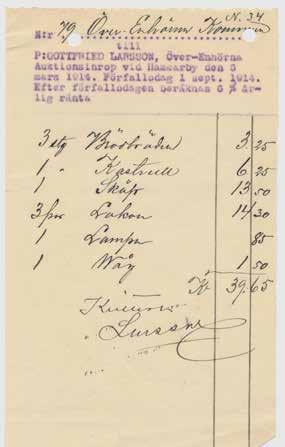 N. 34
N:r 79 Över-Enhörna Kommun
till
P:GOTTFRIED LARSSON, Över-Enhörna
Auktionsinrop vid Hamsarby den 5
mars 1914. Förfallodag 1 sept. 1914.
Efter förfallodagen beräknas 6 % år-
lig ränta
3 stg Brödbräden 3 25
1 " Kastrull 6 25
1 Skåp 13 50
3 par Lakan 14 30
1 Lampa 85
1 Våg 1 50
Kr 39 65
Larsson